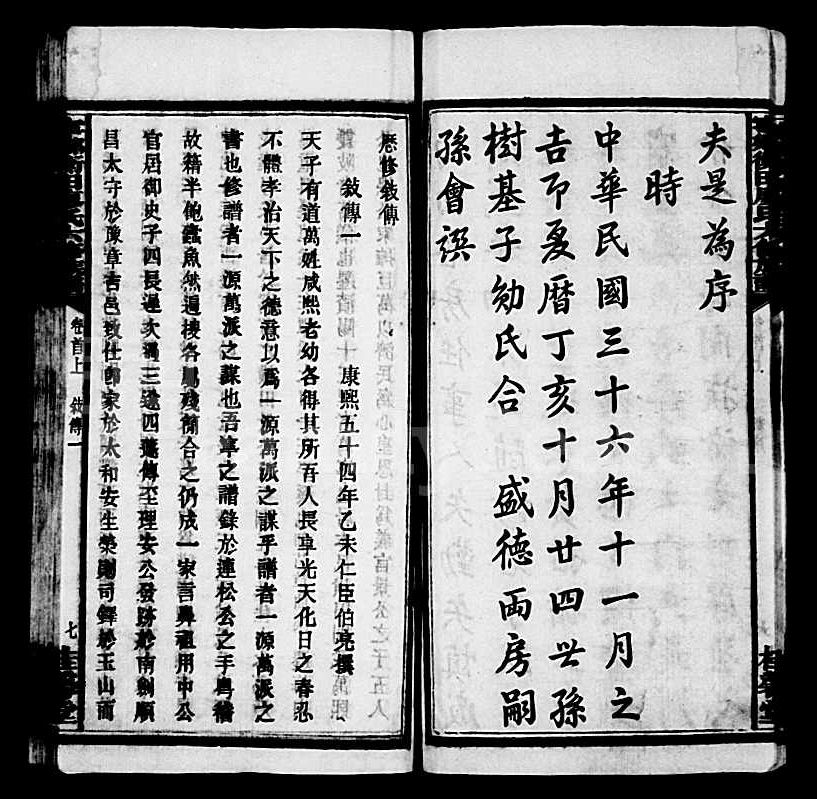 夫是為序
時
中華民國三十六年十一月之
吉卽夏曆丁亥十月廿四世孫
樹基子勉氏合 盛德兩房嗣
孫會譔
歷修敘傳
敘傳一 康熙五十四年乙未仁臣伯亮撰
天子有道萬姓咸熙老幼各得其所吾人長享光天化日之春忍
不體孝治天下之德意以爲一源萬派之謀乎譜者一源萬派之
書也修譜者一源萬派之謀也吾宗之譜錄於連松公之手粤稽
故籍半飽蠹魚然遍搜各屬殘簡合之仍成一家言興祖用中公
官居御史子四長遲次邁三遠四蓬傳至理安公發跡於南劍順
昌太守於豫章吉邑致仕卽家於太和安生榮剛司鐸於玉山而
卷首上 敘傳一
七